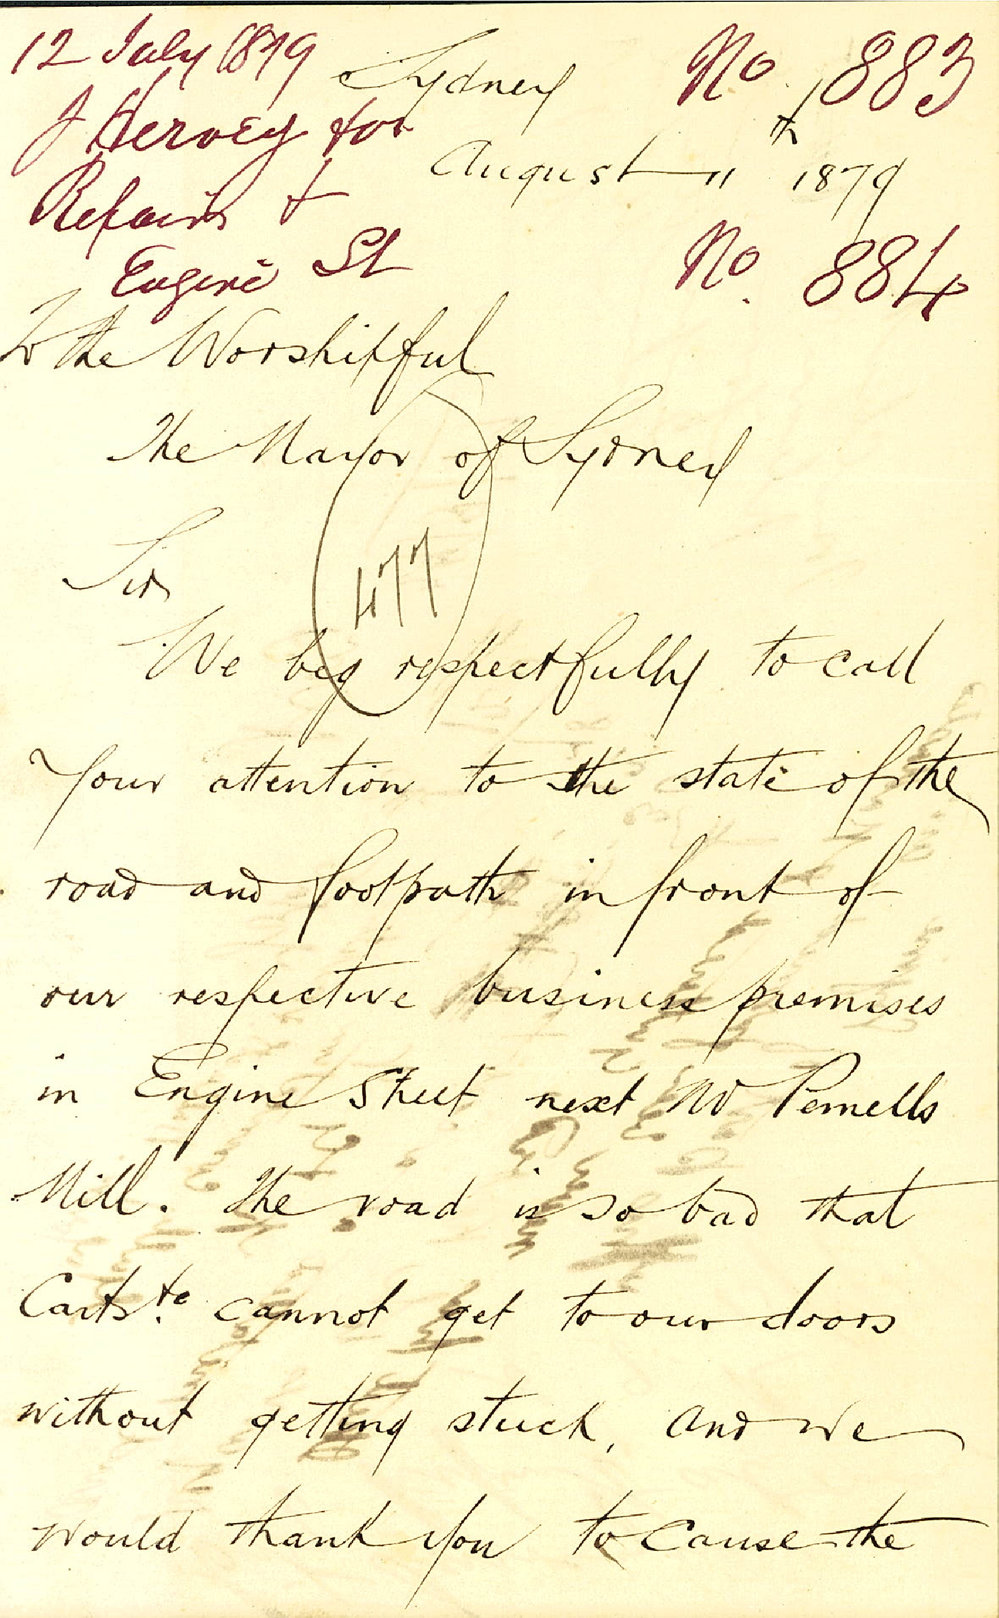 12 July 1879
J Hervey for
Repairs to
Engine St
No 883
No. 884
Sydney
August 11th 1879
To the Worshipful
The Mayor of Sydney
477
Sir
We beg respectfully to call
Your attention to the state of the
road and footpath in front of
our respective business premises
in Engine Street next Mr Pemells
Mill. The road is so bad that
Carts &c. cannot get to our doors
without getting stuck, and we
would thank you to cause the